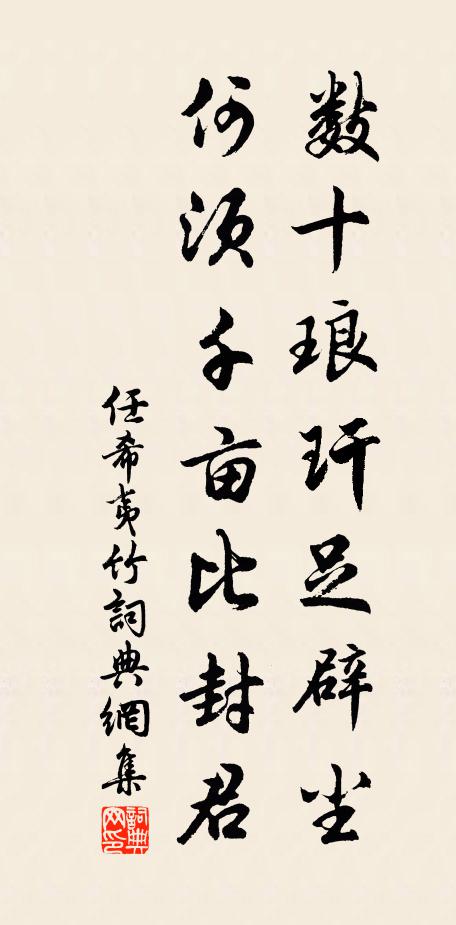 数十琅玕足辟尘
何须千亩比封君
任希夷竹詞典網集
詞典網印